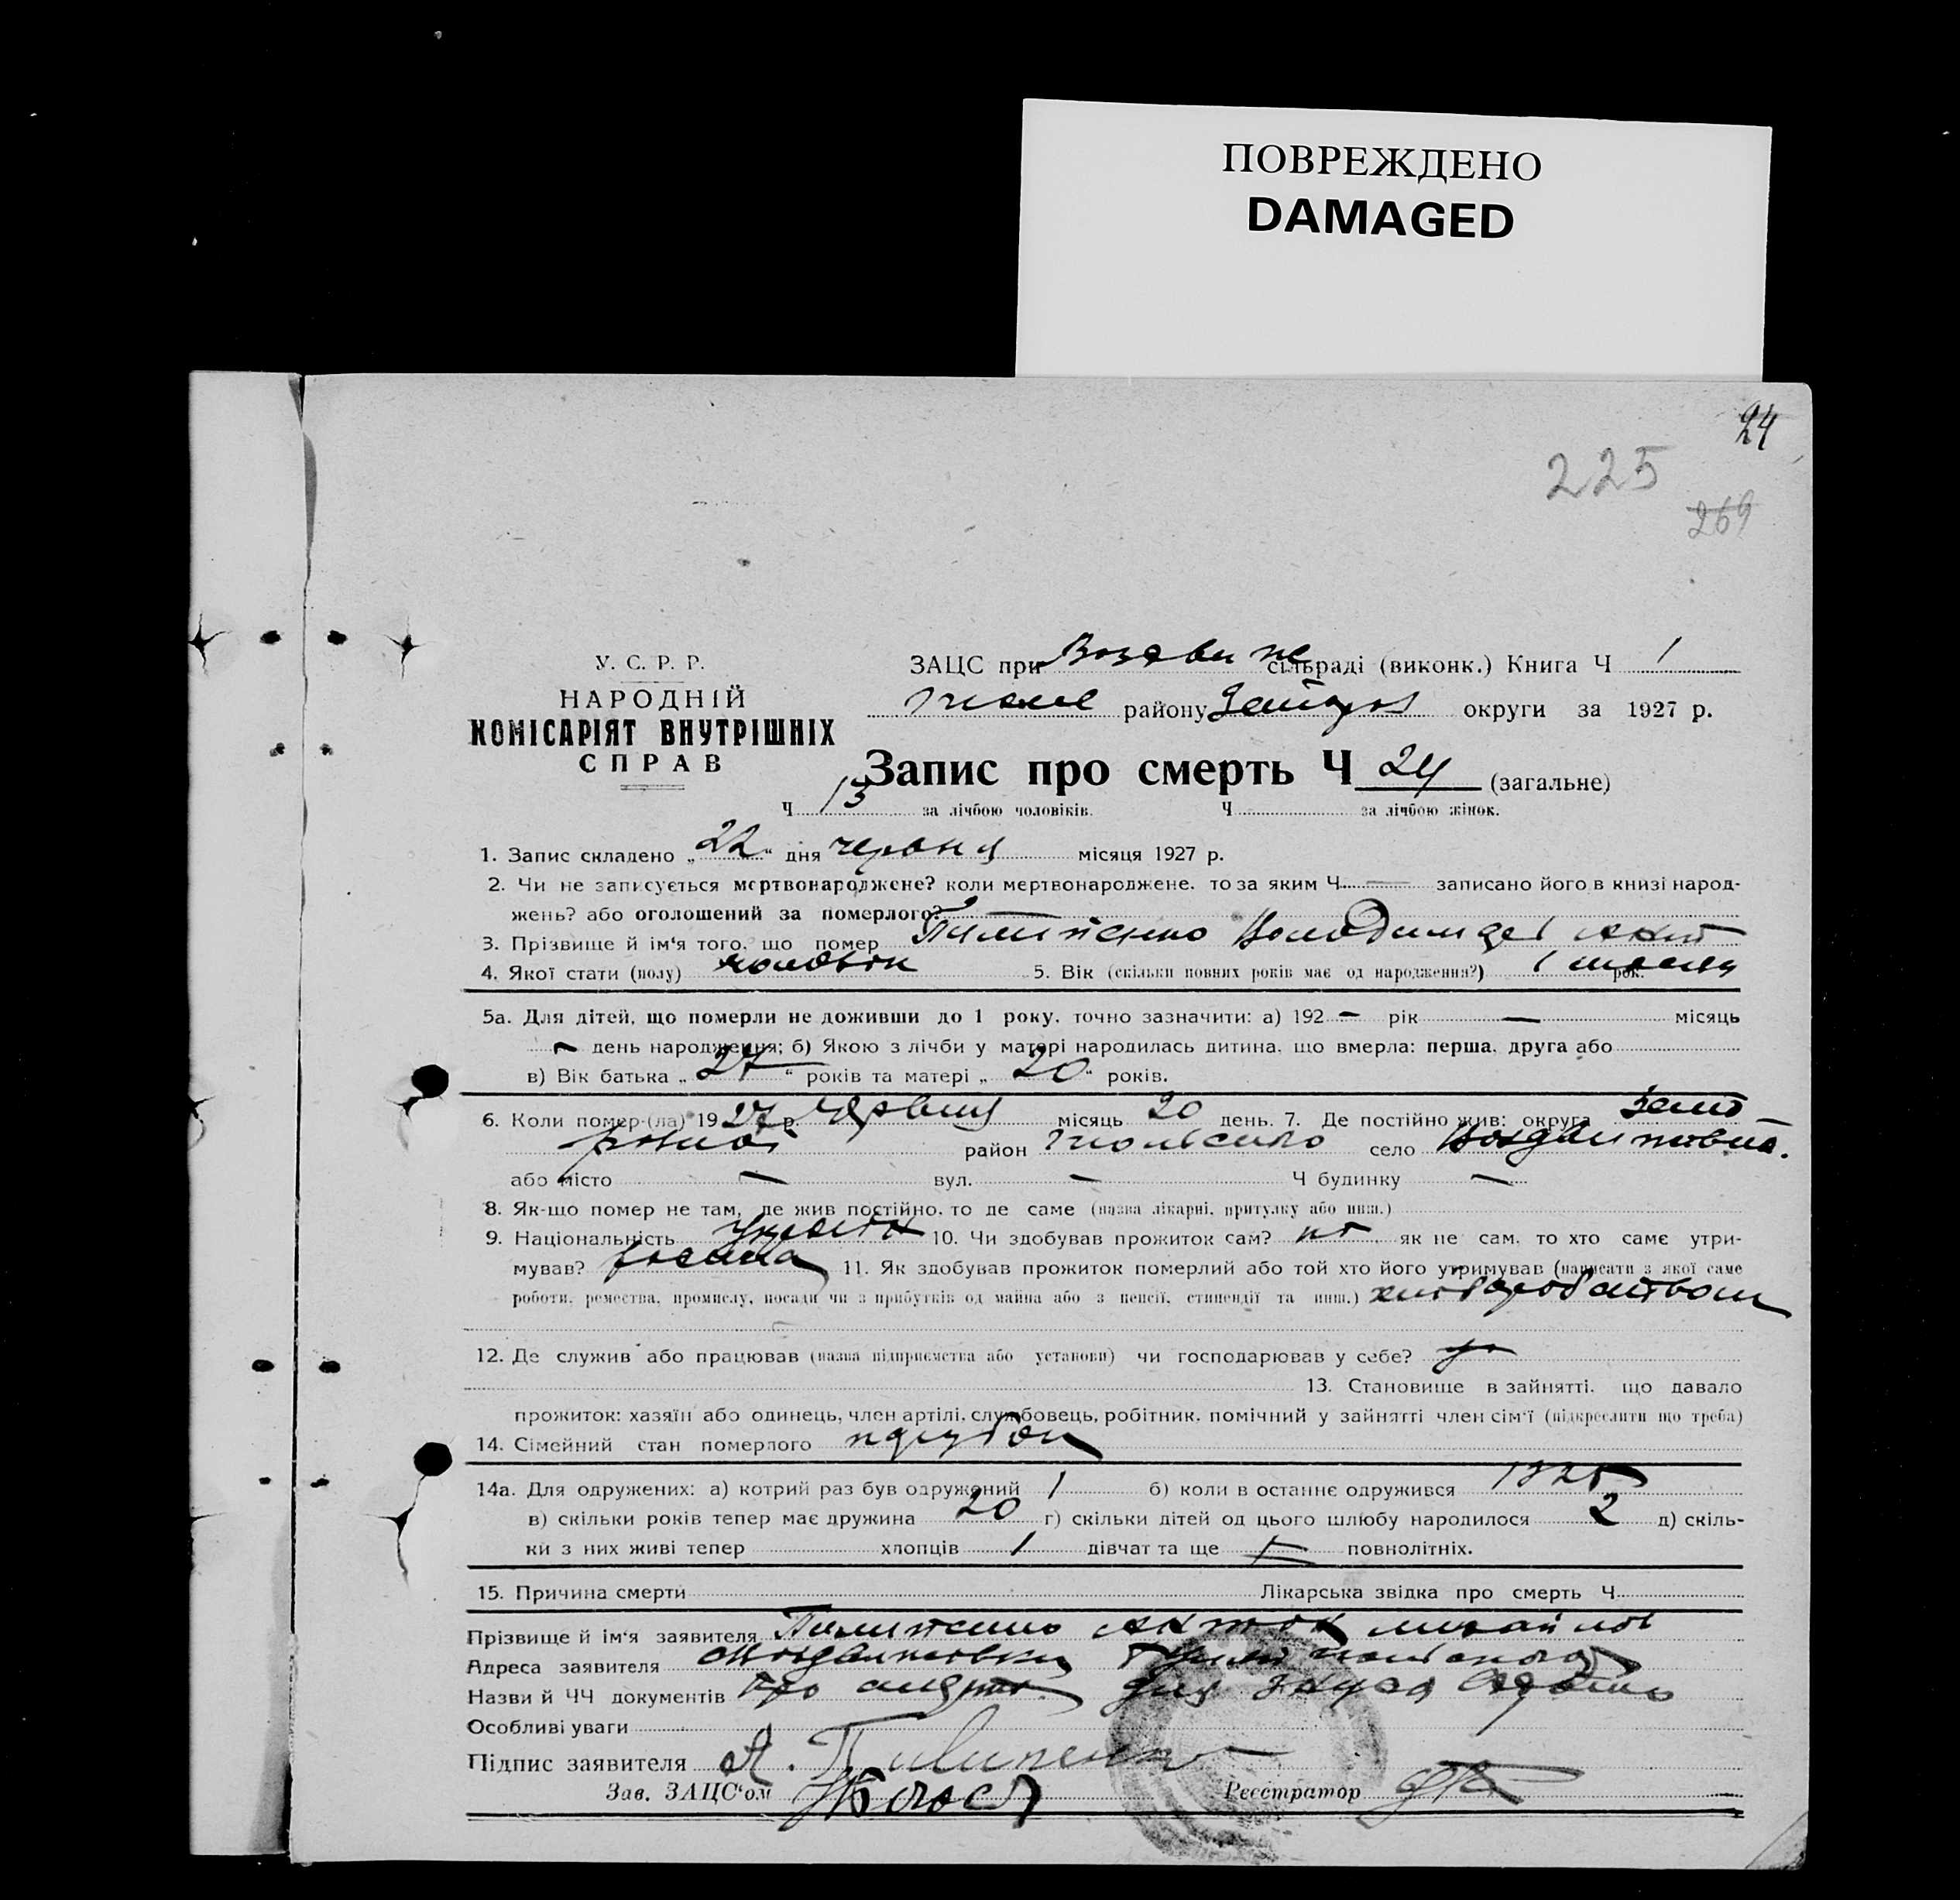 ПОВРЕЖДЕНО
DAMAGED
24
225
269
У. С. Р. Р.
НАРОДНІЙ
КОМІСАРІЯТ ВНУТРІШНІХ
СПРАВ
ЗАЦС при сільраді (виконк.) Книга Ч 1
району округи за 1927 р.
Запис про смерть Ч 24 (загальне)
Ч 13 за лічбою чоловіків. Ч за лічбою жінок.
1. Запис складено „ 22 “ дня червня місяця 1927 р.
2. Чи не записується мертвонароджене? коли мертвонароджене, то за яким Ч — записано його в книзі народ-
жень? або оголошений за померлого?
3. Прізвище й ім'я того, що помер Пилипенко Володимер Ант
4. Якої стати (полу) чоловік 5. Вік (скільки повних років має од народження?) 1 рок.
5а. Для дітей, що померли не доживши до 1 року, точно зазначити: а) 192 — рік — місяць
— день народження; б) Якою з лічби у матері народилась дитина, що вмерла: перша, друга або
в) Вік батька „ 27 “ років та матері „ 20 “ років.
6. Коли помер-(ла) 1927 р. червня місяць 20 день. 7. Де постійно жив: округа
район село
або місто — вул. — Ч будинку —
8. Як-що помер не там, де жив постійно, то де саме (назва лікарні, притулку або инш.)
9. Національність 10. Чи здобував прожиток сам? ні як не сам, то хто саме утри-
мував? 11. Як здобував прожиток померлий або той хто його утримував (написати з якої саме
роботи, ремества, промислу, посади чи з прибутків од майна або з пенсії, стипендії та инш.) хліборобством
12. Де служив або працював (назва підприємства або установи) чи господарював у себе?
13. Становище в зайнятті, що давало
прожиток: хазяїн або одинець, член артілі, службовець, робітник, помічний у зайнятті член сім'ї (підкреслити що треба)
14. Сімейний стан померлого
14а. Для одружених: а) котрий раз був одружений 1 б) коли в останнє одружився 1925
в) скільки років тепер має дружина 20 г) скільки дітей од цього шлюбу народилося 2 д) скіль-
ки з них живі тепер хлопців 1 дівчат та ще повнолітніх.
15. Причина смерти Лікарська звідка про смерть Ч
Прізвище й ім'я заявителя Пилипенко Антон Михайлов
Адреса заявителя
Назви й ЧЧ документів Про смерть
Особливі уваги
Підпис заявителя А. Пилипенко
Зав. ЗАЦС'ом Реєстратор